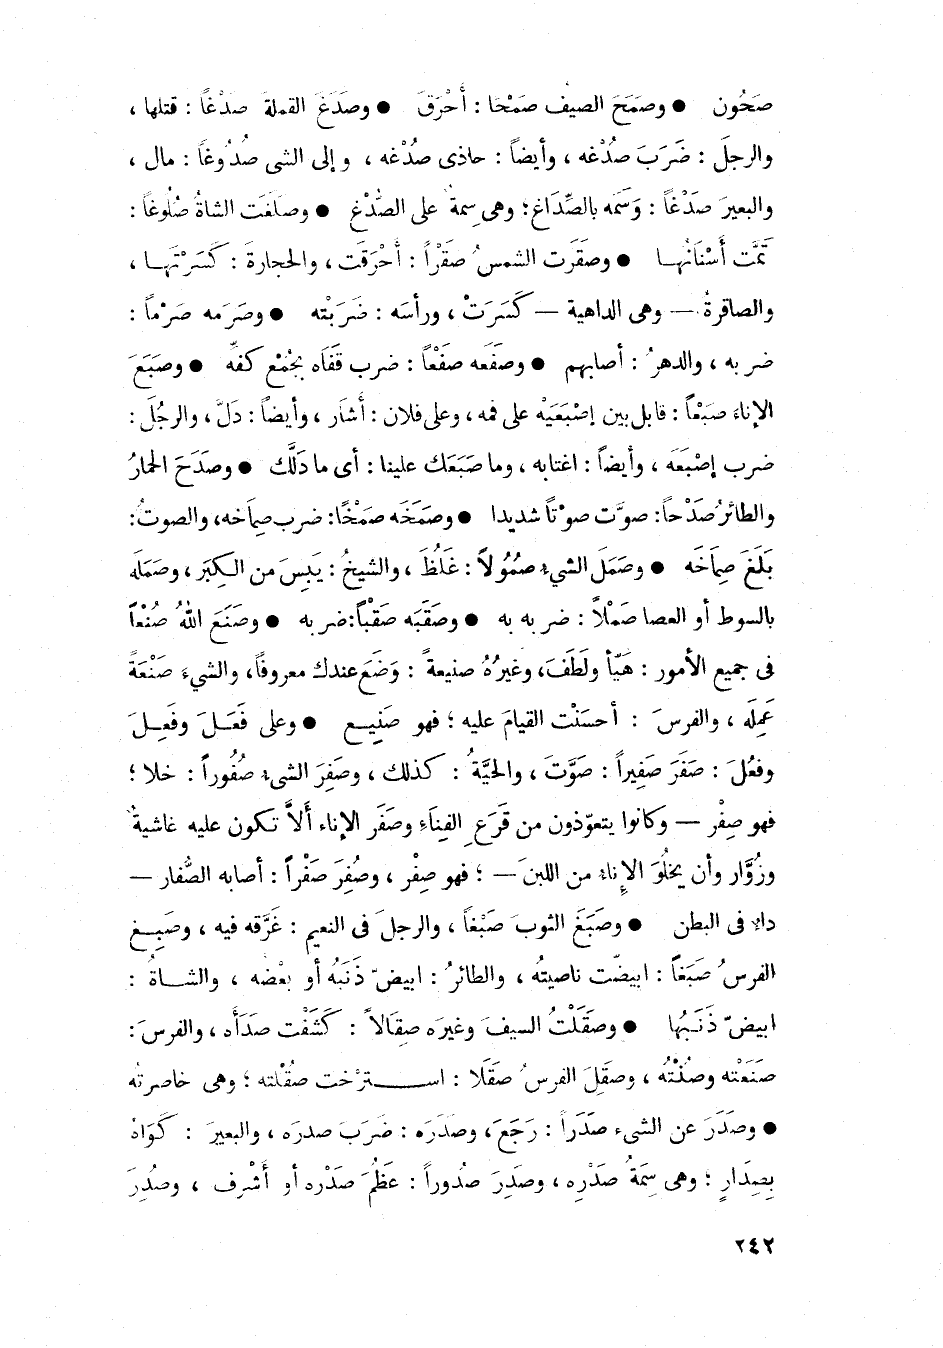 صَحُون ● وصَمَحَ الصيف صَمْحًا : أَحْرَقَ ● وصَدَغَ القملة صدْغاً : قتلها ،
والرجلَ : ضَرَبَ صُدْغه ، وأيضاً : حاذى صُدْغه ، وإلى الشى صُدُوغاً : مال ،
والبعيرَ صَدْغاً : وَسَمَه بالصِّدَاغ ؛ وهى سِمة على الصُّدْغ ● وصلغَت الشاةُ صُلُوغاً :
تَمَّت أَسْنَانُهـا ● وصقَرَت الشمسُ صقْراً : أحْرَقت ، والحجارةَ : كَسَرَتْهـا ،
والصاقرةُ — وهى الداهية — كَسَرَتْ ، ورأسَه : ضَرَبَتْه ● وصَرَمه صَرْماً :
ضربه ، والدهرُ : أصابهم ● وصفَعه صفْعاً : ضرب قَفَاه بجُمْع كفّه ● وصَبَعَ
الإناءَ صَبْعاً : قابل بين إصْبَعَيْه على فمه ، وعلى فلان : أشَار ، وأيضاً : دَلَّ ، والرجُلَ :
ضرب إصْبَعَه ، وأيضاً : اغتابه ، وما صَبَعَك علينا : أى ما دَلَّك ● وصدَحَ الحمارُ
والطائرُ صدْحاً : صوَّت صوْتاً شديدا ● وصَمَخَه صَمْخًا : ضرب صِمَاخه، والصوتُ :
بَلَغَ صِمَاخَه ● وصَمَل الشيءُ صُمُولاً : غَلُظَ ، والشيخُ : يَبِسَ من الكِبَر ، وصَمَله
بالسوط أو العصا صَمْلاً : ضربه به ● وصقَبَه صَقْباً : ضربه ● وصنَعَ اللهُ صُنْعاً
فى جميع الأمور : هَيَّأ ولَطَفَ، وغيرُهُ صنيعةً : وَضَع عندك معروفًا، والشيءَ صَنْعَةً
عَمِلَه ، والفرسَ : أحسَنْت القيامَ عليه ؛ فهو صَنِيـع ● وعلى فَعَـلَ وفَعِـلَ
وفعُلَ : صَفَرَ صَفِيراً : صَوَّتَ ، والحيَّةُ : كذلك ، وصَفِرَ الشيءُ صُفُوراً : خلا ؛
فهو صِفْر — وكانوا يتعوّذون من قَرَعِ الفِنَاءِ وصَفَر الإناء ألاَّ تكون عليه غاشيةٌ
وزُوَّار وأن يخلُوَ الإناءُ من اللبنَ — ؛ فهو صِفْر ، وصُفِرَ صَفْراً : أصابه الصُّفار —
داءٌ فى البطن ● وصَبَغَ الثوبَ صَبْغاً ، والرجلَ فى النعيم : غَرَّقه فيه ، وصَبِـغ
الفرسُ صَبَغاً : ابيضّت ناصيتُه ، والطائرُ : ابيضّ ذَنَبُه أو بعْضه ، والشـاةُ :
ابيضّ ذَنَـبُها ● وصقَلْتُ السيفَ وغيرَه صِقَالاً : كَشَفْت صَدَأه ، والفرسَ :
صَنَعْته وصُنْتُه ، وصقِلَ الفرسُ صَقَلا : اســترْخت صُقْلته ؛ وهى خاصرته
● وصدَرَ عن الشيء صدَراً : رَجَعَ، وصدَرَه : ضَرَبَ صدره ، والبعيرَ : كَوَاهُ
بِصِدَارٍ ؛ وهى سِمَةُ صَدْرِه ، وصَدِرَ صُدوراً : عَظُمَ صَدْره أو أشْرف ، وصُدِرَ
٢٤٢